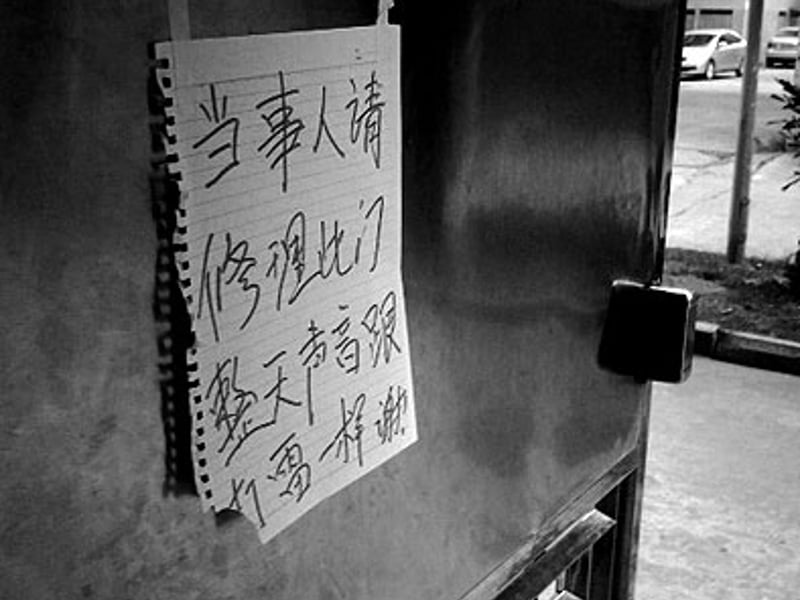 当事人请
修理此门
整天声音跟
打雷一样谢!